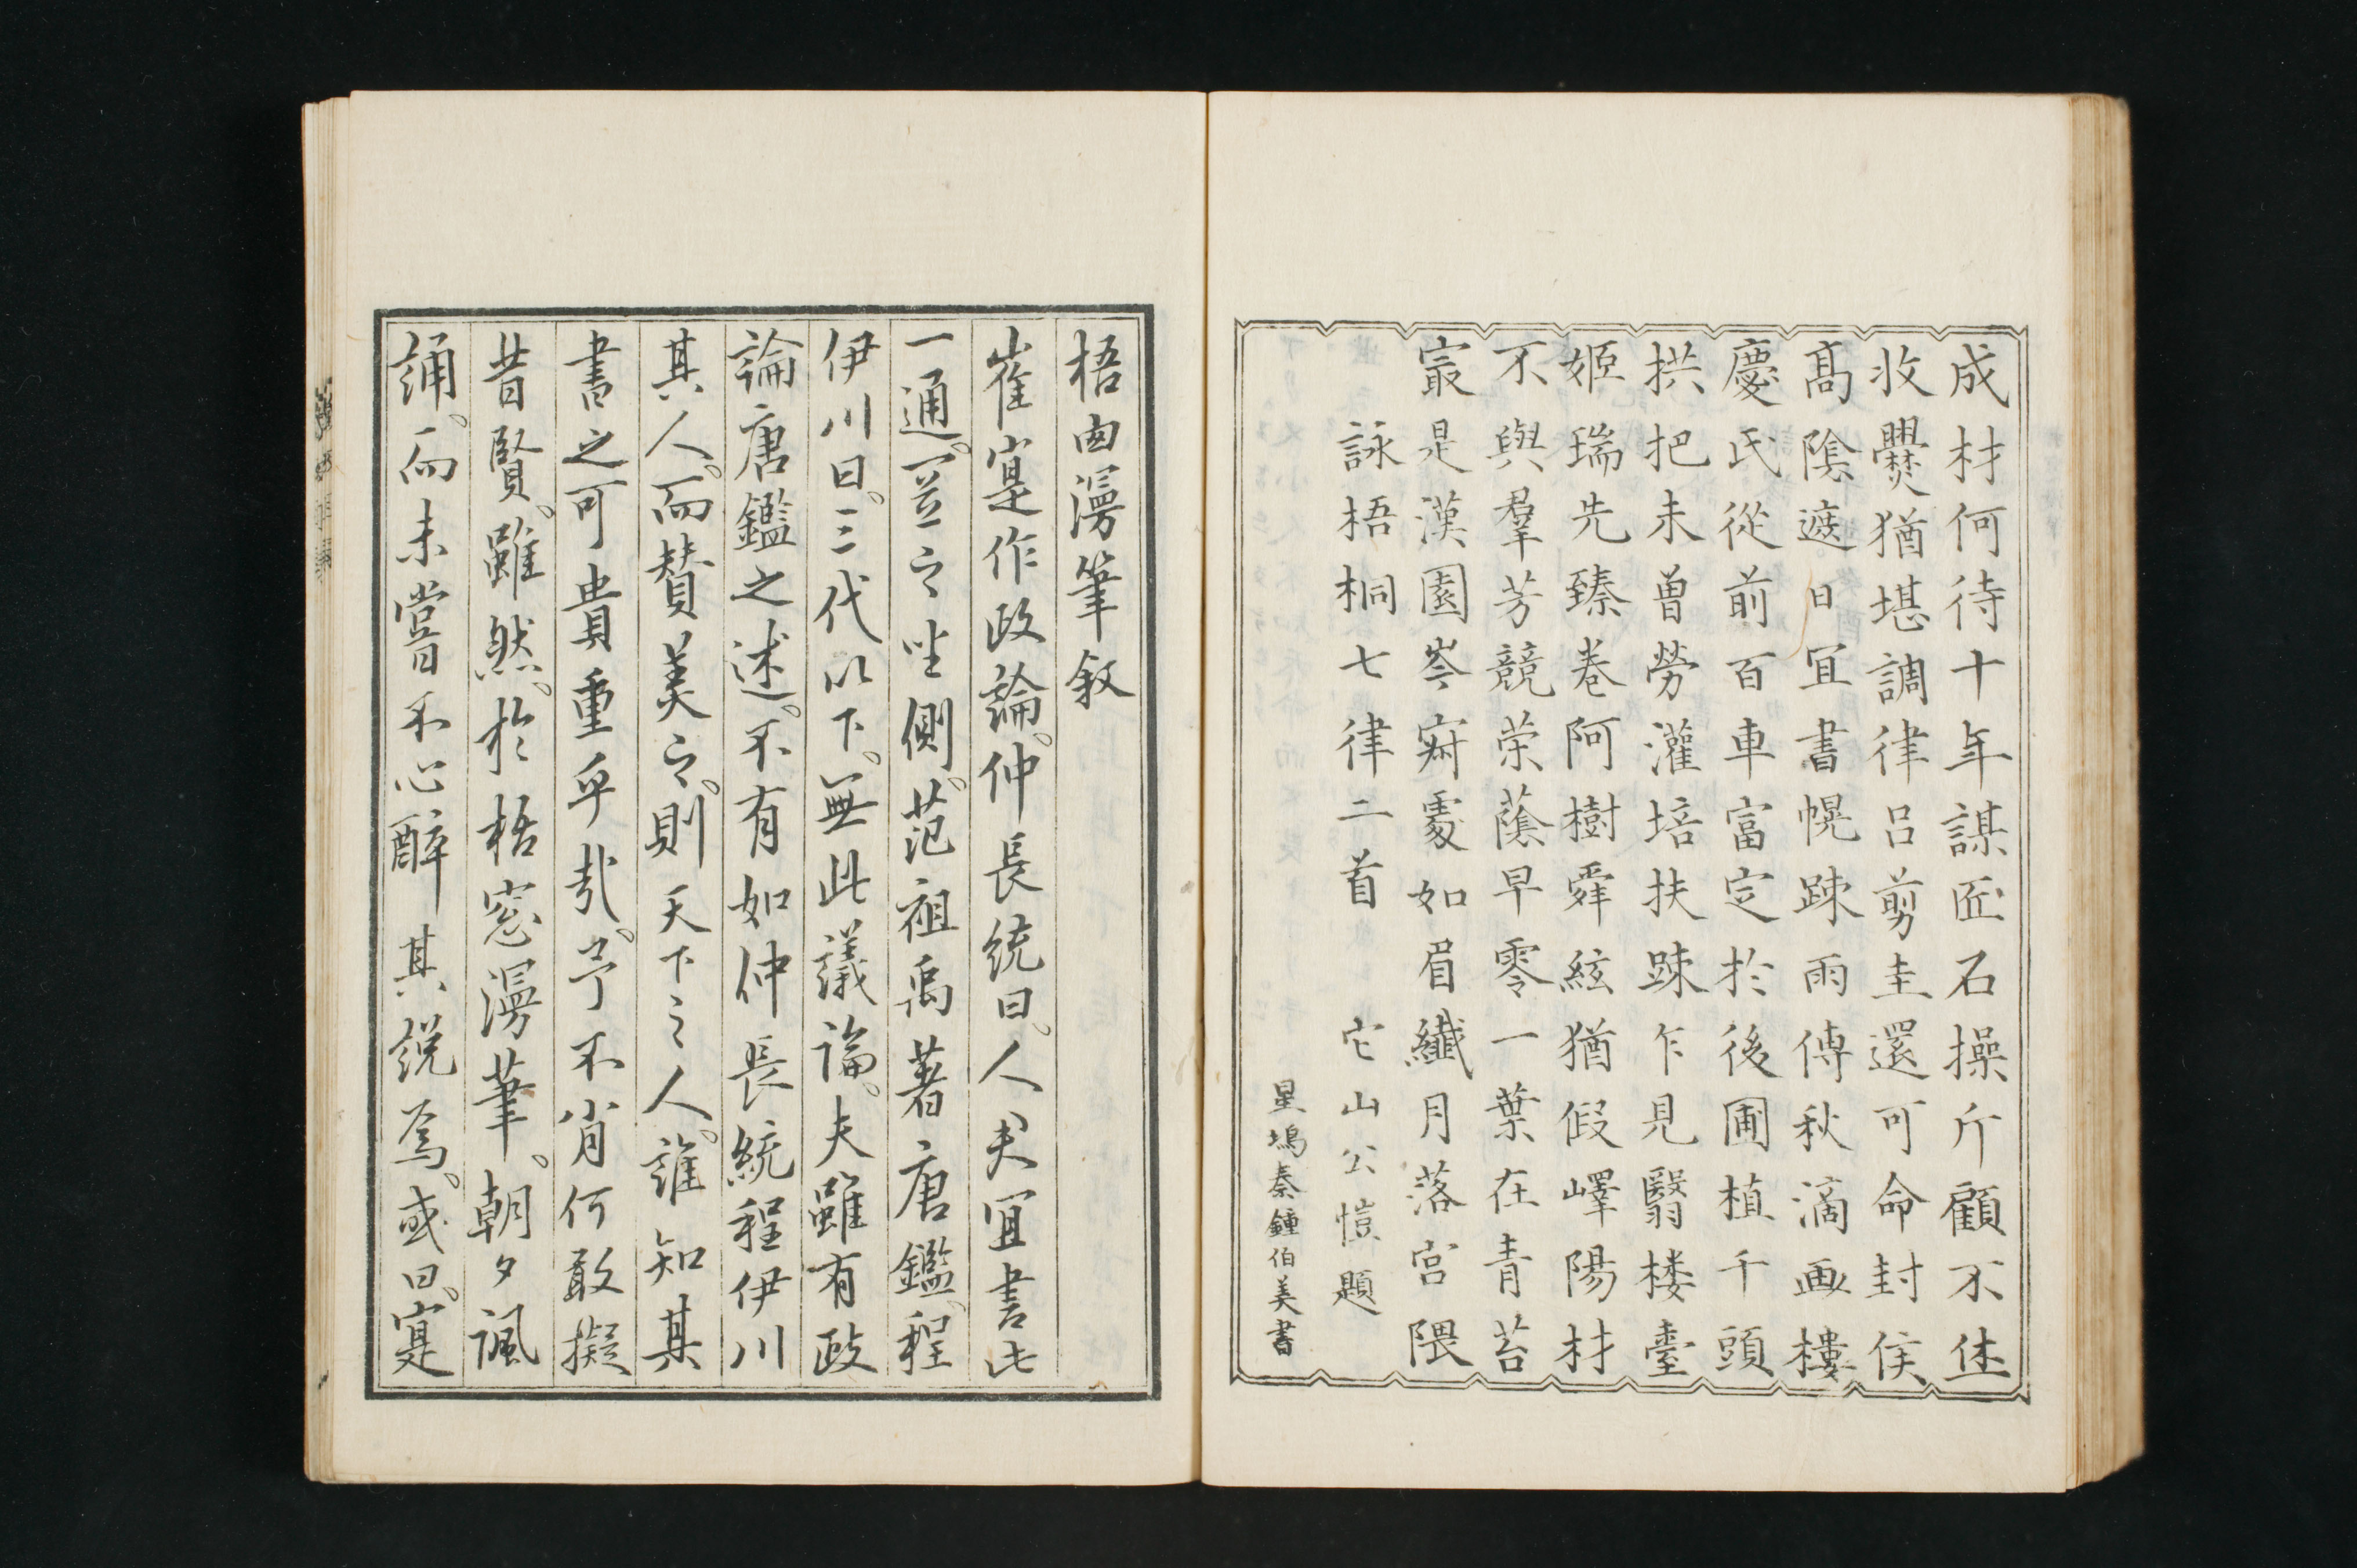 成材何待十年謀匠石操斤顧不㐰
收爨猶堪調律呂剪圭還可命封侯
髙陰遮日宜書幌踈雨傳秋滴画樓
慶氏從前百車富定於後圃植千頭
拱把未曽勞灌培扶踈乍見翳楼臺
姬瑞先臻巻阿樹舜絃猶假嶧陽材
不與羣芳競荣蔭早零一葉在青苔
㝡是漢園岑寂處如眉纎月落宮隈
詠梧桐七律二首 它山公愷題
星塢秦鍾伯美書
梧囱漫筆叙
崔寔作政論。仲長統曰。人夫宜書此
一通。並之坐側。范祖禹著唐鑑。程
伊川曰。三代以下。無此議論。夫雖有政
論唐鑑之述。不有如仲長統程伊川
其人。而賛美之。則天下之人。誰知其
書之可貴重乎哉。予不肖何敢擬
昔賢。雖然。於梧窓漫筆。朝夕諷
誦。而未嘗不心醉其説焉。或曰。寔